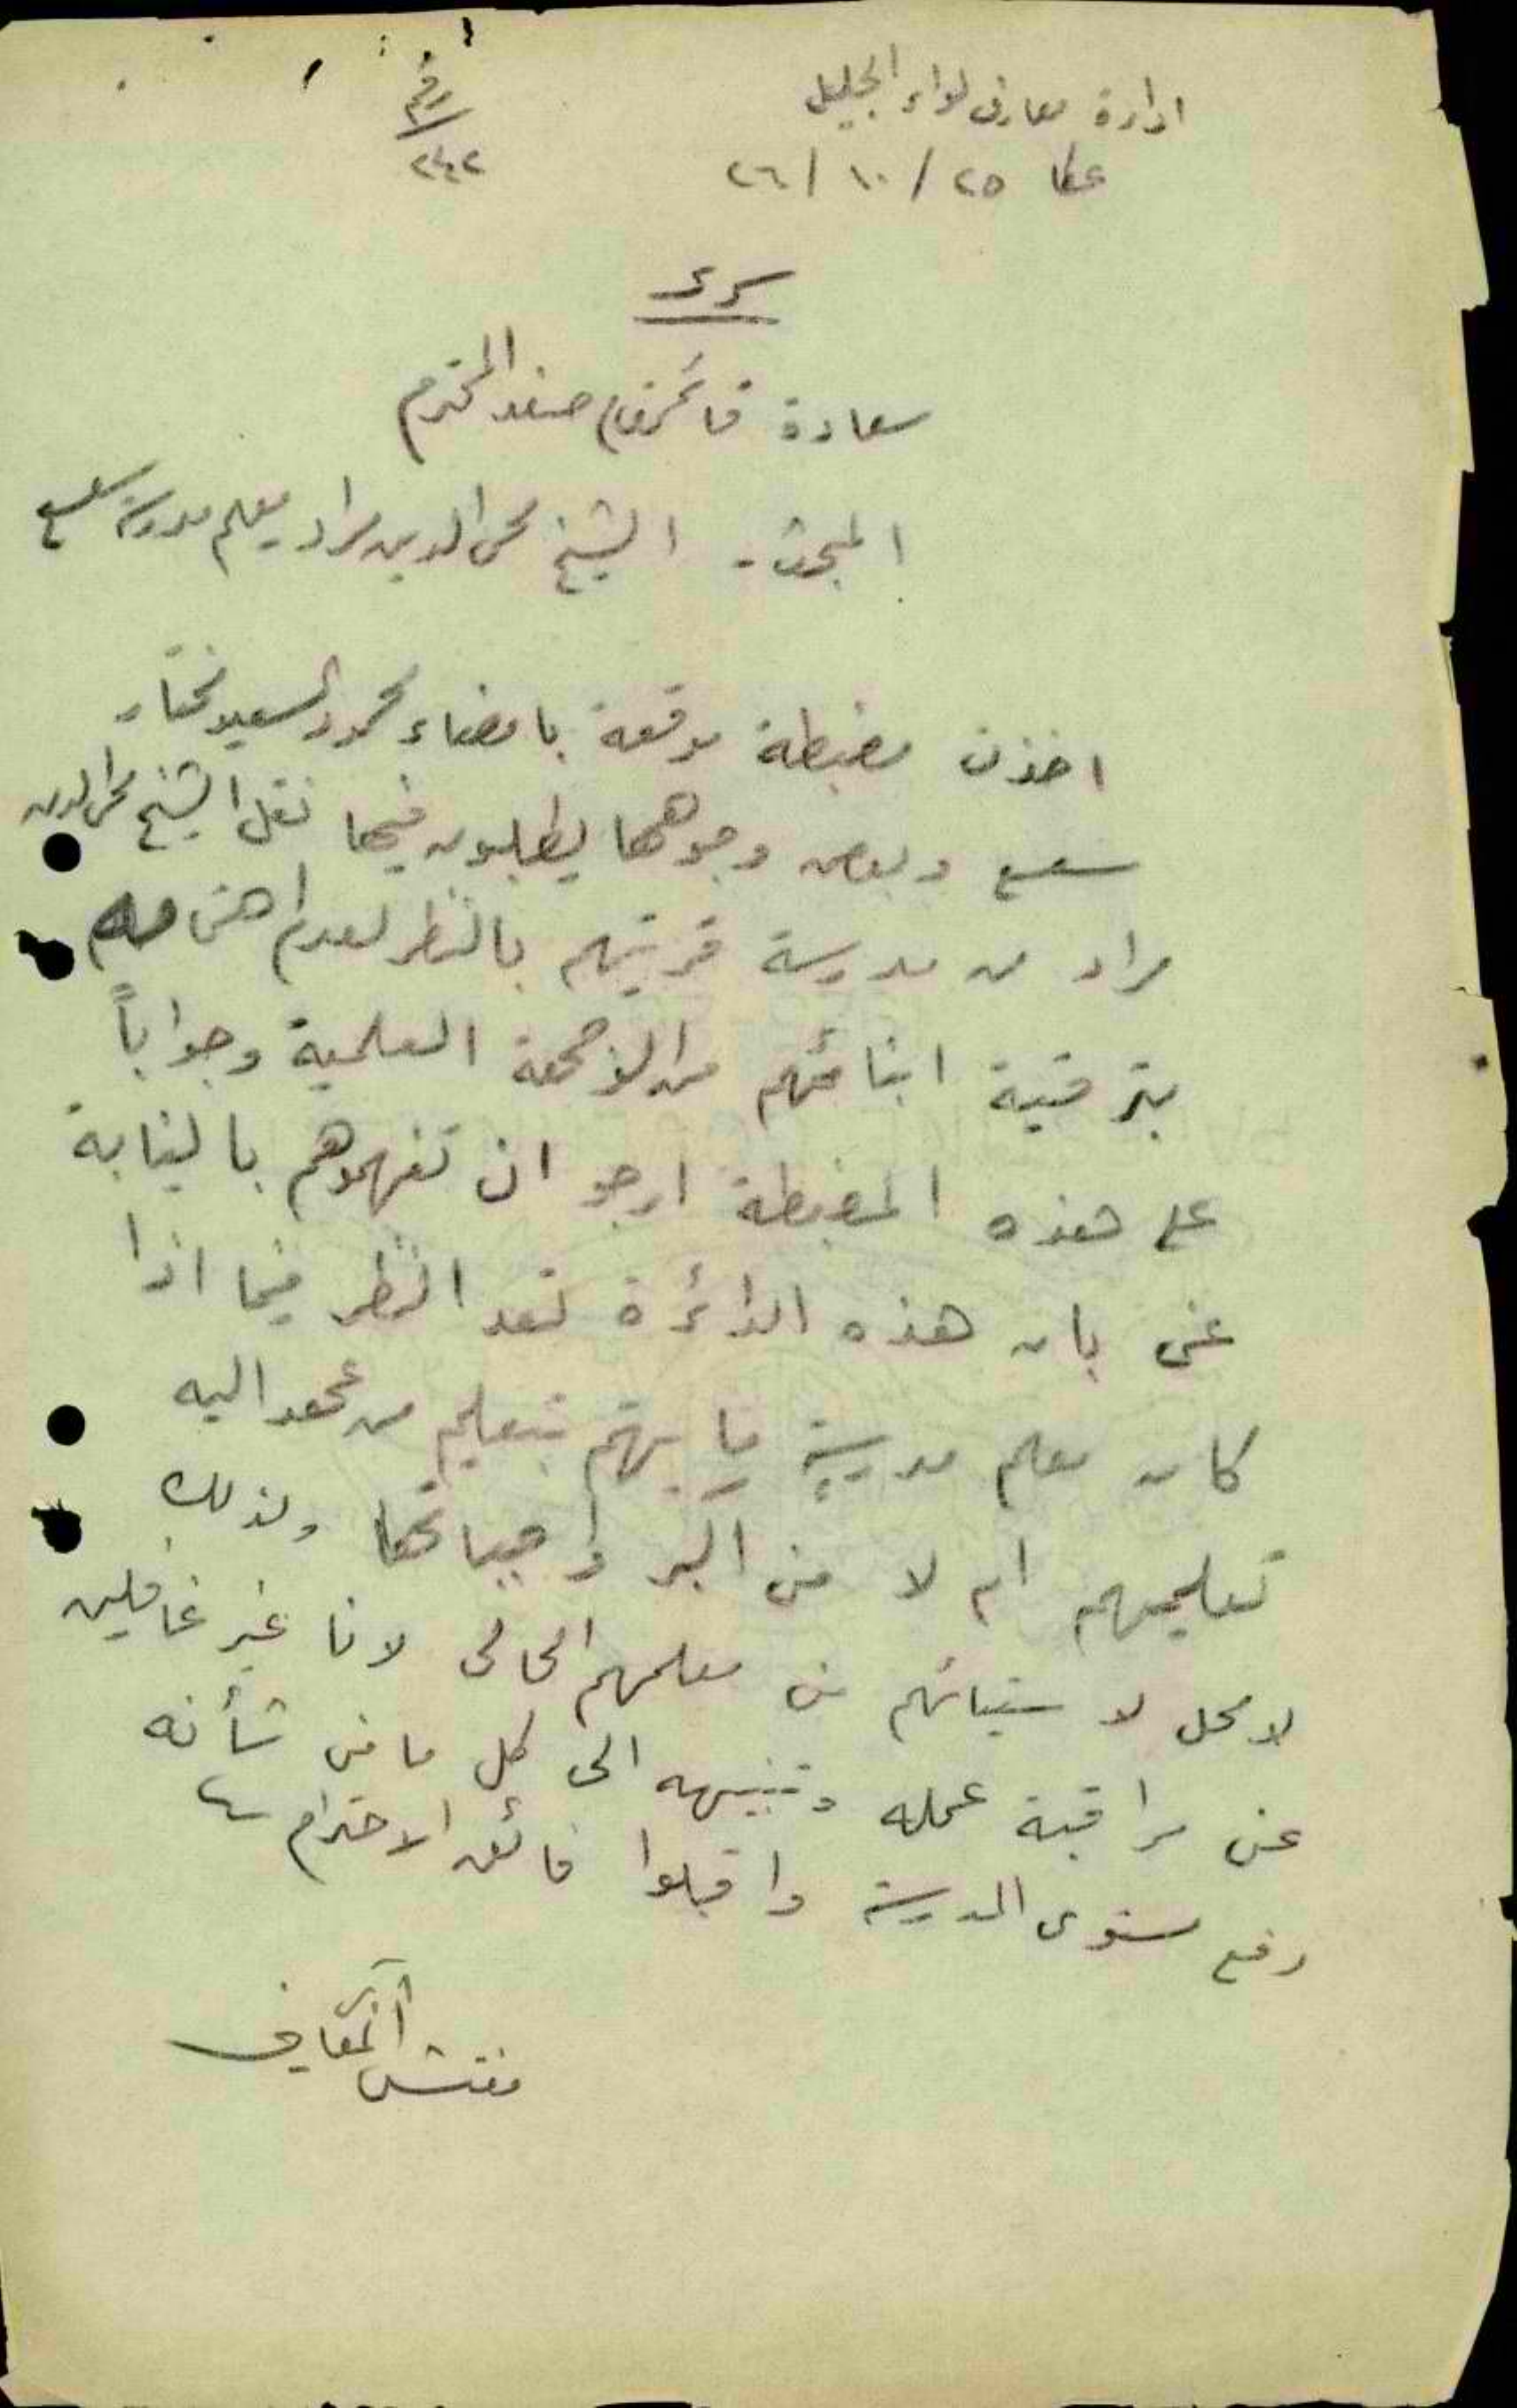 ادارة معارف لواء الجليل
رقم
عكا ٢٥ / ١٠ / ٢٦
٢٤٢
سرى
سعادة قائمقام صفد المحترم
المبحث - الشيخ محى الدين مراد معلم مدرسة سعسع
اخذت مضبطة موقعة بامضاء محمود السعيد مختار
سعسع وبعض وجوهها يطلبون فيها نقل الشيخ محى الدين
مراد من مدرسة قريتهم بالنظر لعدم اهتمامه
بترقية ابنائهم من الوجهة العلمية وجواباً
على هذه المضبطة ارجو ان تفهموهم بالنيابة
عنى بان هذه الدائرة تعد النظر فيما اذا
كان معلم مدرسةٍ ما يهتم بتعليم من عهد اليه
تعليمهم ام لا من اكبر واجباتها ولذلك
لا محل لاستيائهم من معلمهم الحالى لانا غير غافلين
عن مراقبة عمله وتنبيهه الى كل ما من شأنه
رفع مستوى المدرسة واقبلوا فائق الاحترام
مفتش المعارف